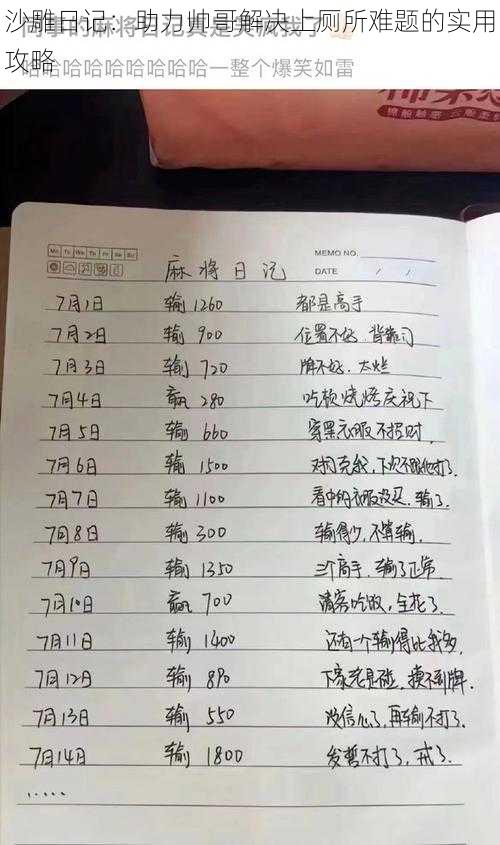 沙雕日记：助力帅哥解决上厕所难题的实用
攻略
哈哈哈哈哈哈哈哈哈一整个爆笑如雷
Mo Tu We Th Fr Sa Su
MEMO NO.
DATE / /
麻将日记
7月1日 输1260 都是高手
7月2日 输 900 位置不好.背靠门
7月3日 输 720 牌不好.太烂
7月4日 赢 280 吃顿烧烤庆祝下
7月5日 输 660 穿黑衣服不招财.
7月6日 输 1500 对门克我,下次不跟他打了.
7月7日 输 1100 看中的衣服没买.输了.
7月8日 输 300 输得少,不算输.
7月9日 输 1350 三个高手.输了正常
7月10日 赢 700 请客吃饭,全花了.
7月11日 输 1400 还有一个输得比我多.
7月12日 输 890 下家老是碰.摸不到牌.
7月13日 输 550 没信心了,再输不打了.
7月14日 输 1800 发誓不打了,戒了.
.....